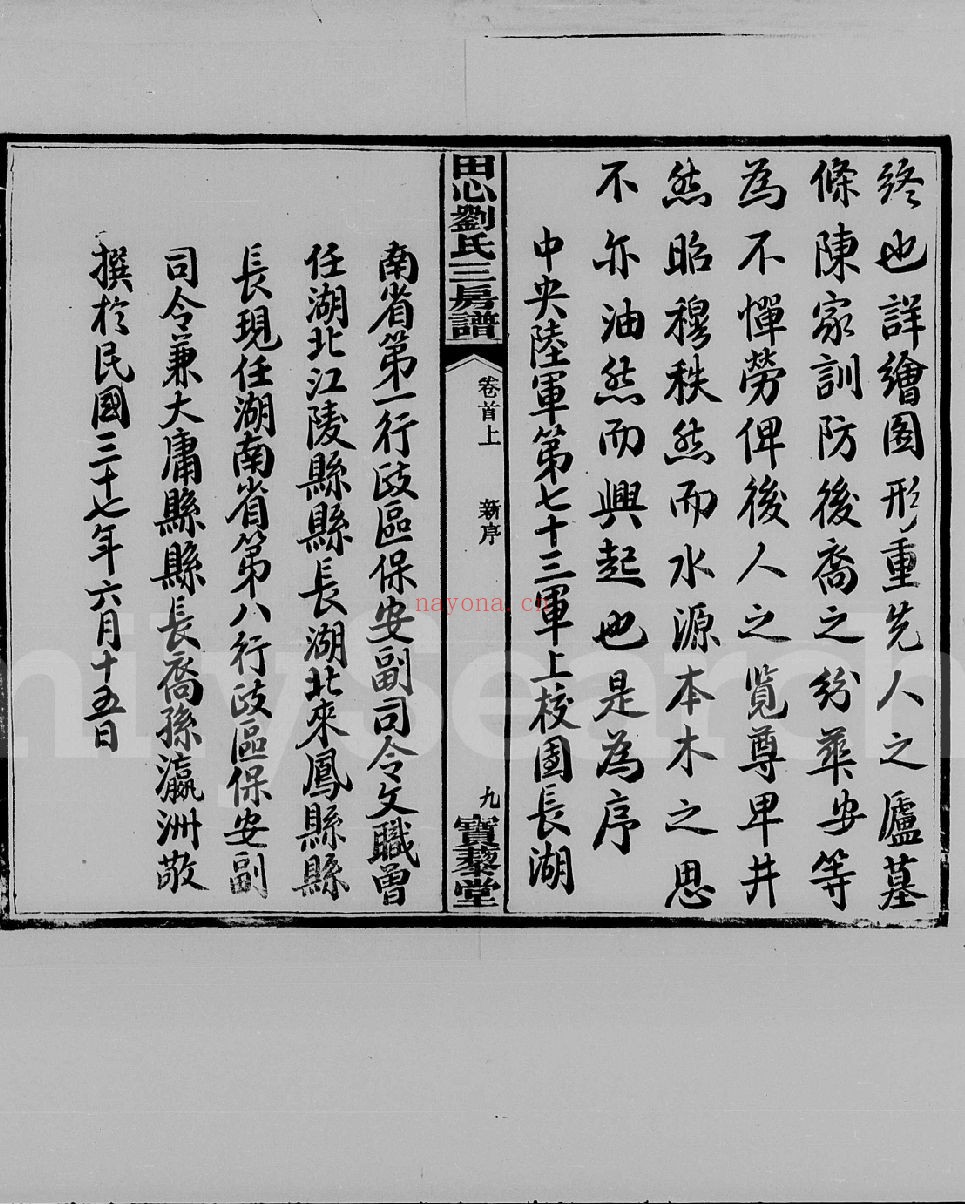 終也詳繪图形重先人之廬墓
條陳家訓防後裔之紛華安等
為不憚勞俾後人之览尊卑井
然昭穆秩然而水源本木之思
不亦油然而興起也是為序
中央陸軍第七十三軍上校團長湖
田心劉氏三房譜
卷首上
新序
九
寶藜堂
南省第一行政區保安副司令文職曾
任湖北江陵縣縣長湖北來鳳縣縣
長現任湖南省第八行政區保安副
司令兼大庸縣縣長裔孫瀛洲敬
撰於民國三十七年六月十五日
nayona.cn
milySearch